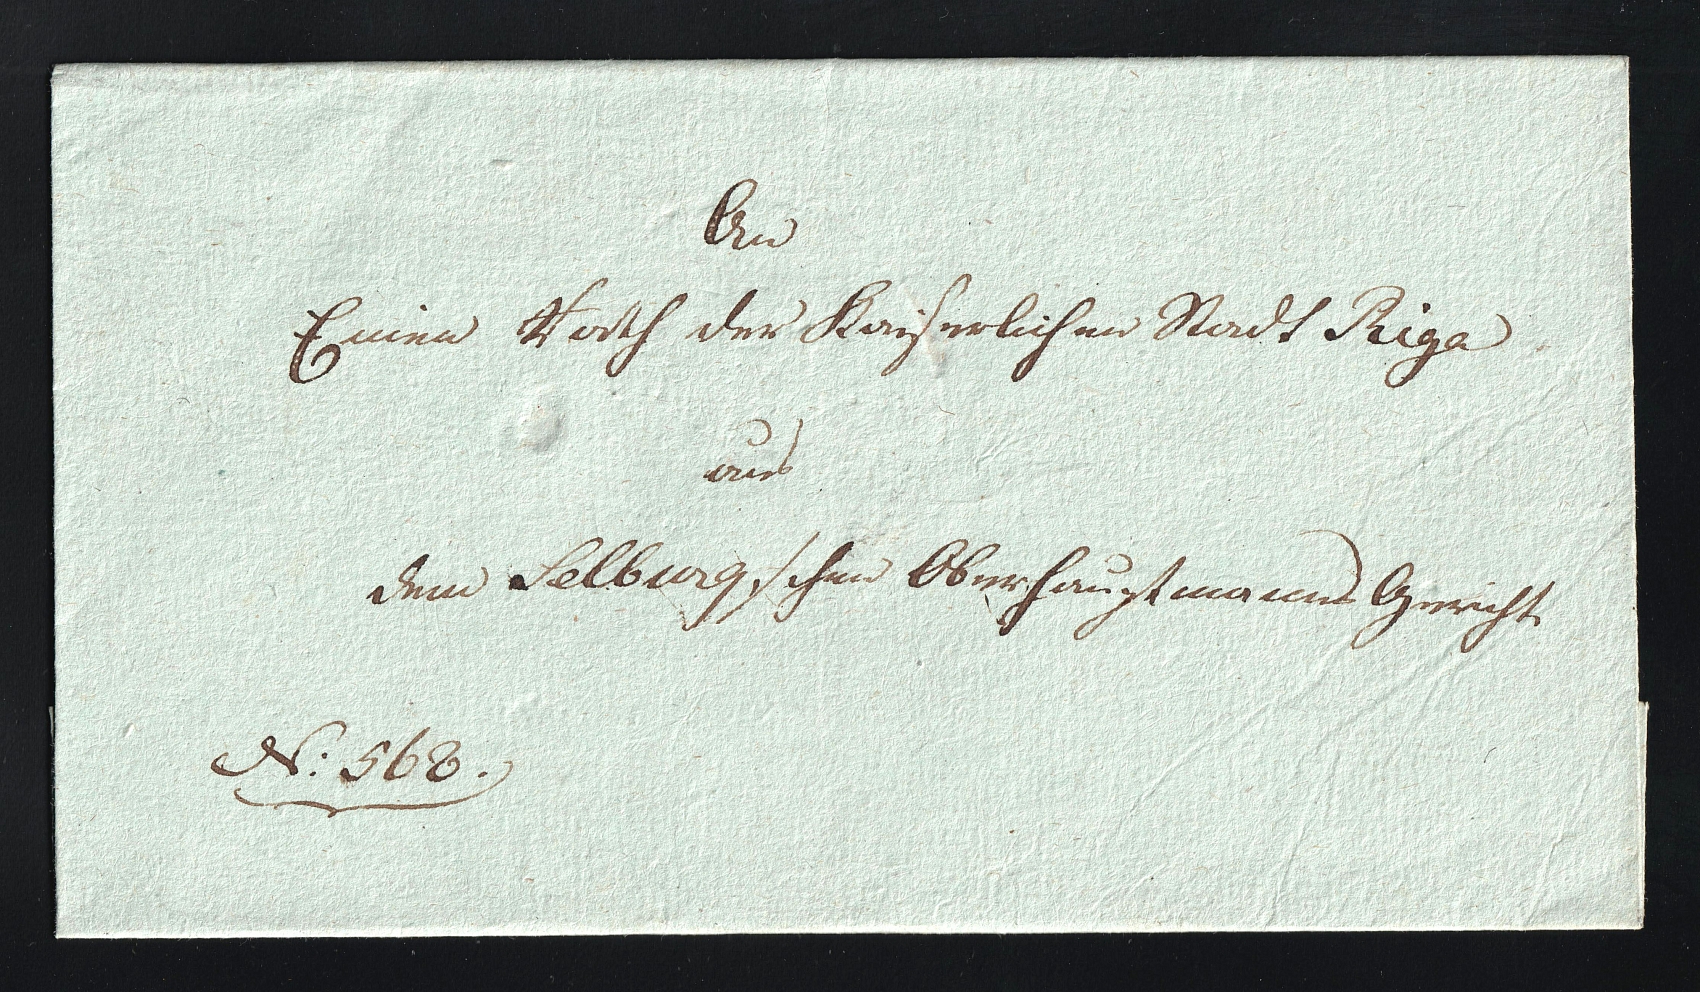 An
Einen Rath der Kaiserlichen Stadt Riga
aus
dem Selburgschen Oberhauptmanns Gericht
N: 568.